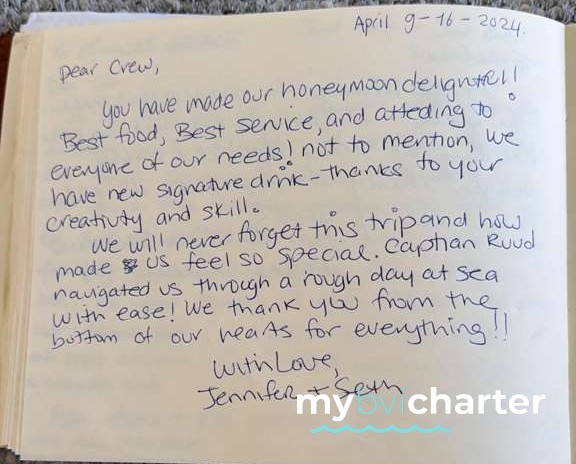 April 9-16-2024.
Dear Crew,
You have made our honeymoon delightful!
Best food, Best service, and atteding to
everyone of our needs! not to mention, we
have new signature drink - thanks to your
creativity and skill.
We will never forget this trip and how
made us feel so special. Capthan Ruud
navigated us through a rough day at sea
with ease! We thank you from the
bottom of our hearts for everything!!
With Love,
Jennifer + Seth
mybvicharter